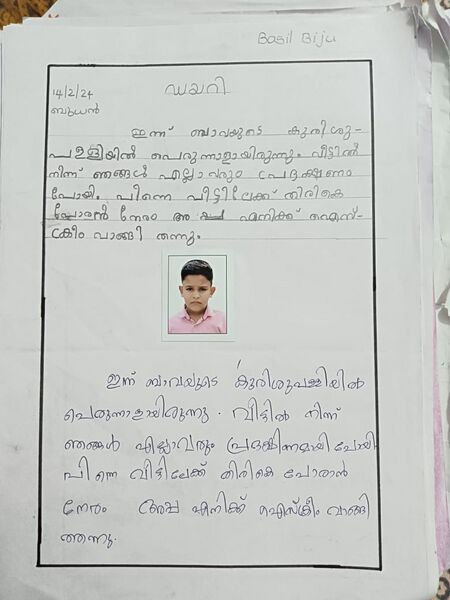 Basil Biju
ഡയറി
14/2/24
ബുധൻ
ഇന്ന് ബാവയുടെ കുരിശു-
പള്ളിയിൽ പെരുന്നാളായിരുന്നു. വീട്ടിൽ
നിന്ന് ഞങ്ങൾ എല്ലാവരും പ്രദക്ഷണം
പോയി. പിന്നെ വീട്ടിലേക്ക് തിരികെ
പോരാൻ നേരം അപ്പ എനിക്ക് ഐസ്-
ക്രീം വാങ്ങി തന്നു.
ഇന്ന് ബാവയുടെ കുരിശുപള്ളിയിൽ
പെരുന്നാളായിരുന്നു. വീട്ടിൽ നിന്ന്
ഞങ്ങൾ എല്ലാവരും പ്രദക്ഷിണമായി പോയി
പിന്നെ വീട്ടിലേക്ക് തിരികെ പോരാൻ
നേരം അപ്പ എനിക്ക് ഐസ്ക്രീം വാങ്ങി
തന്നു.